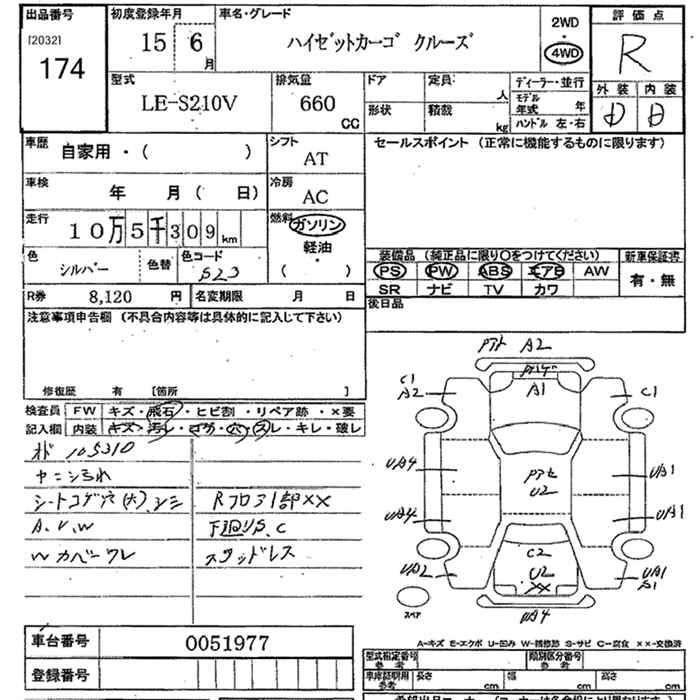 出品番号 初度登録年月 車名・グレード 2WD 評価点
[2032] 174 15 6月 ハイゼットカーゴ クルーズ 4WD R
型式 排気量 ドア 定員 人 ディーラー・並行 外装 内装
LE-S210V 660 CC 形状 積載 kg モデル年式 年 D D
ハンドル 左・右
車歴 自家用・( ) シフト AT セールスポイント (正常に機能するものに限ります)
車検 年 月( 日) 冷房 AC
走行 10万5千309km 燃料 ガソリン
軽油
・
( )
色 シルバー 色替 色コード S23
装備品 (純正品に限り○をつけてください) 新車保証書
PS PW ABS エアB AW 有・無
SR ナビ TV カワ
R券 8,120 円 名変期限 月 日 後日品
注意事項申告欄 (不具合内容等は具体的に記入して下さい)
修復歴 有 [箇所 ]
検査員 FW キズ・飛石・ヒビ割・リペア跡・×要
記入欄 内装 キズ・汚レ・コゲ・穴・スレ・キレ・破レ
105310
シートコゲ穴(大)、シミ Rフロア1部××
A、U、W 下廻りS、C
W カバーワレ スタッドレス
A2
C1 A2 A1 C1
UA4 UA1
U2
UA4 UA1
C2
U2 U2 UA1 S1
××
UA4
スペア
車台番号 0051977
登録番号
A-キズ E-エクボ U-凹み W-補修跡 S-サビ C-腐食 ××-交換済
型式指定番号 参考 類別区分番号 参考
車庫証明用 参考 長さ cm 幅 cm 高さ cm